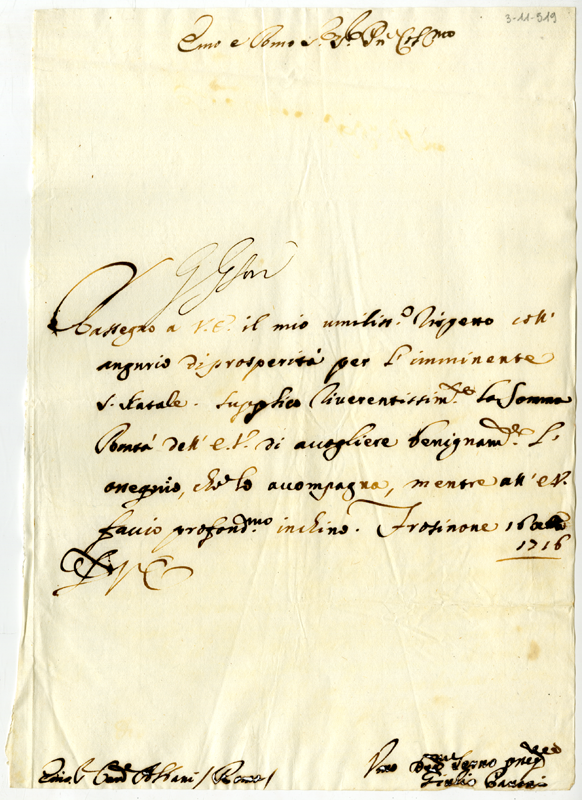 3-11-519
Emo e Rmo S.r
Rassegno a V.E. il mio umiliss.o rispetto coll'
augurio di prosperità per l'imminente
S. Natale. Supplico riverentissim.te la somma
Bontà dell'E.V. di accogliere benignam.te l'
ossequio, che lo accompagna, mentre all'E.V.
faccio profond.mo inchino. Frosinone 16
1716
Card. Albani / Roma /